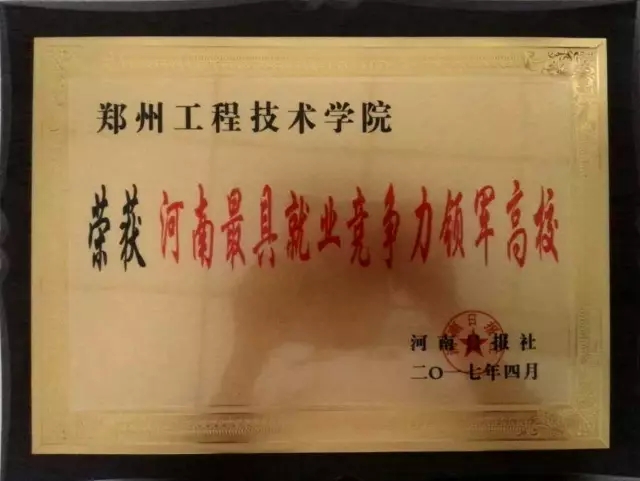 郑州工程技术学院
荣获 河南最具就业竞争力领军高校
河南日报社
二〇一七年四月